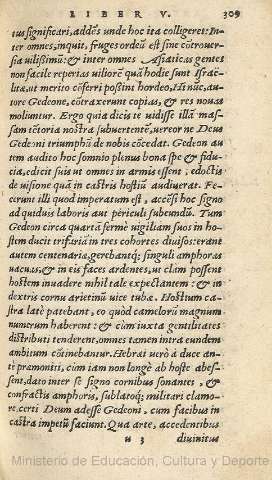 LIBER V. 309
tus significari, addẽs unde hoc ita colligeret: In
ter omnes, inquit, fruges ordeũ est sine cõtrouer-
sia uilissimũ: & inter omnes Asiaticas gentes
non facile repertas uiliorẽ quã hodie sunt Israë-
litæ, ut merito cõferri possint hordeo, Hi nũc, au-
tore Gedeone, cõtraxerunt copias, & res nouas
moliuntur. Ergo quia dicis te uidisse illã mas-
sam tẽtoria nostra subuertentẽ, uereor ne Deus
Gedeoni triumphũ de nobis cõcedat. Gedeon au
tem audito hoc somnio plenus bona spe & fidu-
cia, edicit suis ut omnes in armis essent, edoctis
de uisione quã in castris hostiũ audiuerat. Fe-
cerunt illi quod imperatum est, accẽsi hoc signo
ad quiduis laboris aut periculi subeundũ. Tum
Gedeon circa quarta fermè uigiliam suos in ho-
stem ducit trifariã in tres cohortes diuisos: erant
autem centenaria, gerebantq; singuli amphoras
uacuas, & in eis faces ardentes, ut clam possent
hostem inuadere nihil tale expectantem: & in
dextris cornu arietinũ uice tubæ. Hostium ca-
stra latè patebant, eo quòd camelorũ magnum
numerum haberent: & cùm iuxta gentilitates
distributi tenderent, omnes tamen intra eundem
ambitum cõtinebantur. Hebræi uerò à duce an-
te præmoniti, cùm iam non longè ab hoste abes-
sent, dato inter se signo cornibus sonantes, &
confractis amphoris, sublatoq; militari clamo-
re, certi Deum adesse Gedeoni, cum facibus in
castra impetũ faciunt. Qua arte, accedentibus
u 3 diuinitus
Ministerio de Educación, Cultura y Deporte